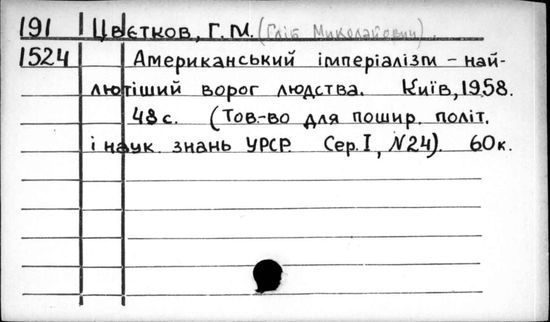 191 Цвєтков, Г. М. (Гліб Миколайович).
1524 Американський імперіалізм – най-
лютіший ворог людства. Київ, 1958.
48 с. (Тов-во для пошир. політ.
і наук. знань УРСР. Сер. I, №24). 60 к.